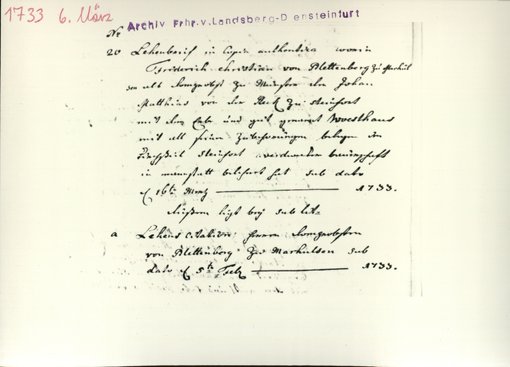 1733 6. März
Archiv Frhr.v.Landsberg-D ensteinfurt
No
20 Lehenbrief in Copia authentica worin
Friderich Christian von Plettenberg zu Marhul
sen als Domprobst zu Münster den Johan
Matthias von der Reck zu Steinfort
mit dem Erbe und gut genant Woesthaus
mit all seinen Zubehörungen belegen im
Kirchspiel Steinfort
in belehnet hat sub dato
16t Martz 1733.
ligt bey sub litt.
a Lehens Citation Herrn Domprobsten
von Plettenberg zu Marhulsen sub
dato 5t 1733.